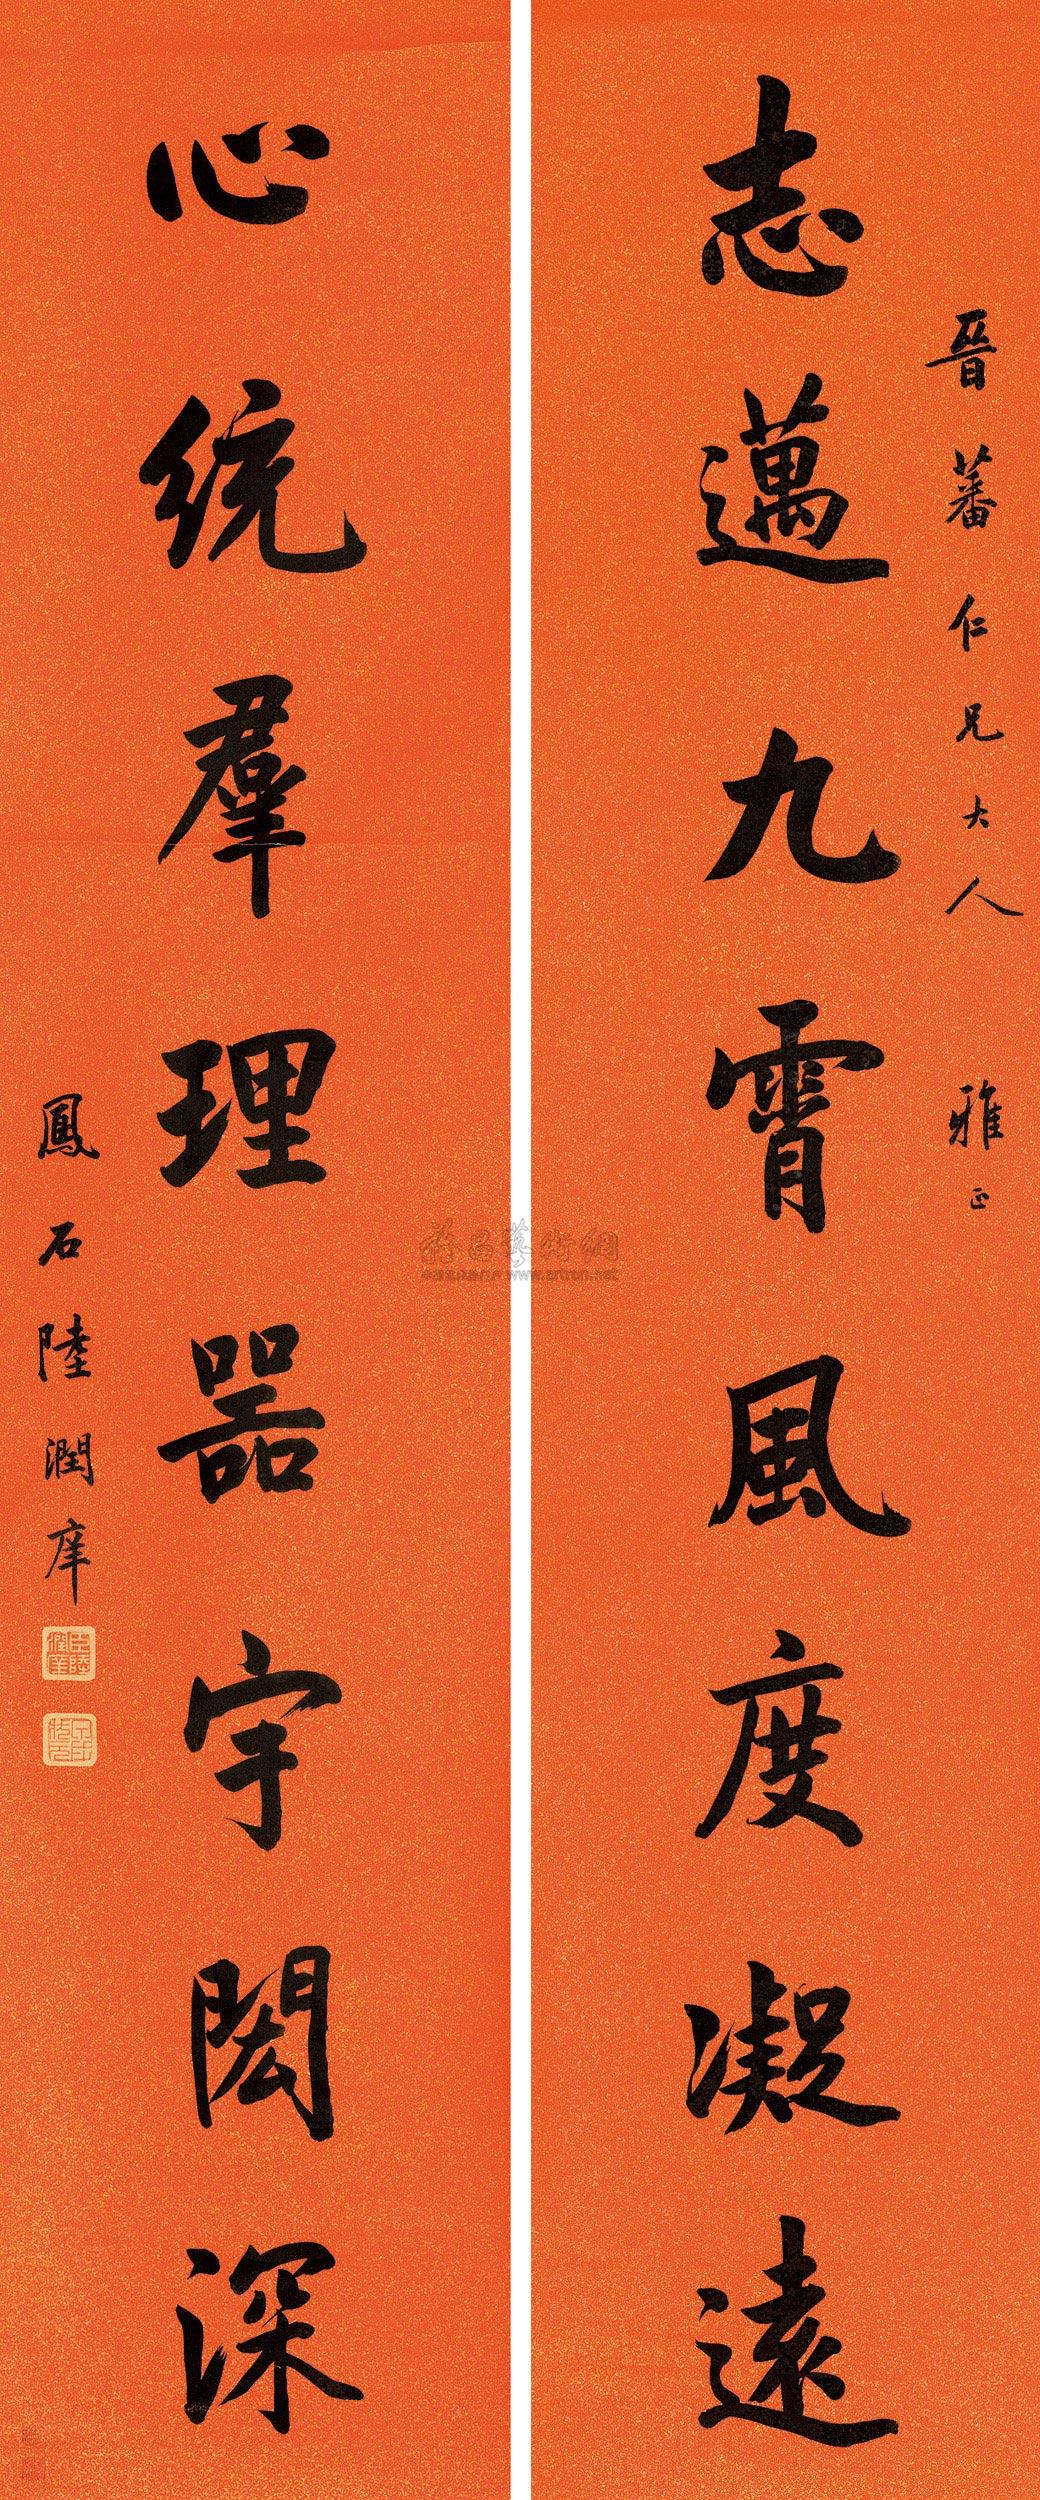 晉蕃仁兄大人 雅正
志邁九霄風度凝遠
心統羣理器宇閎深
鳳石陸潤庠
臣陸潤庠
雅昌藝術網
www.artron.net